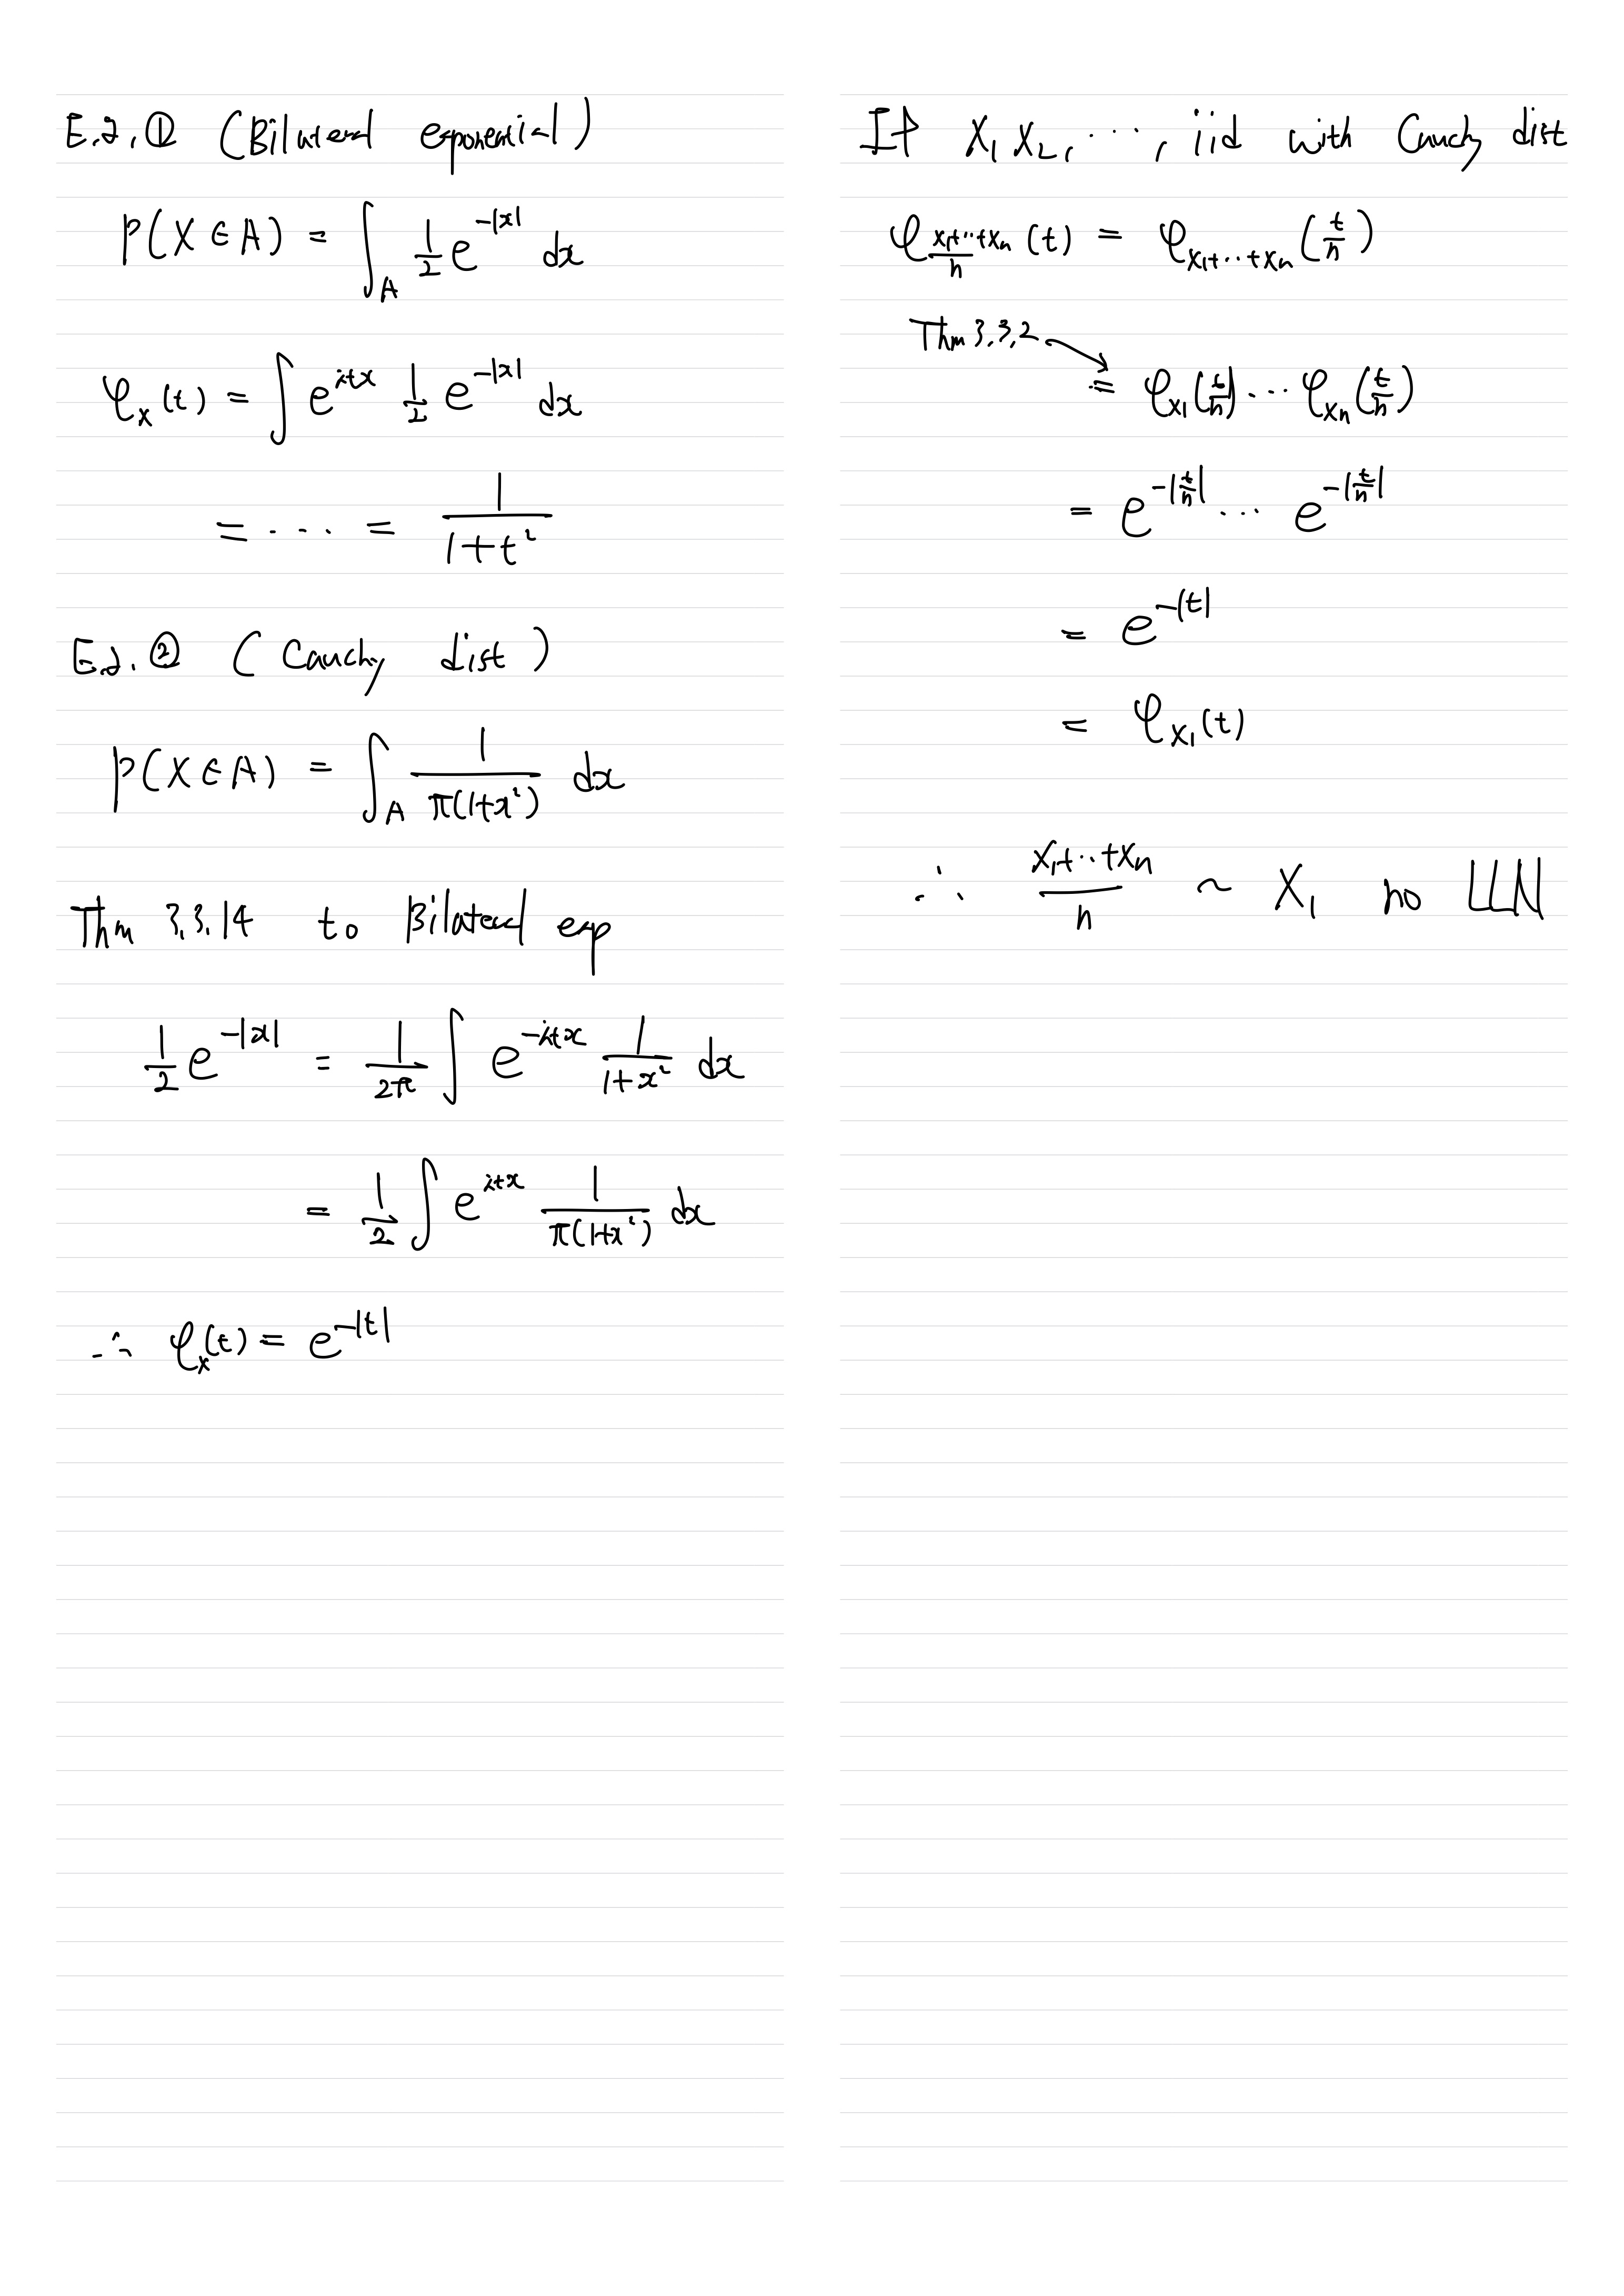 E.g. ① (Bilateral exponential)
P(X ∈ A) = ∫_A 1/2 e^{-|x|} dx
φ_X(t) = ∫ e^{itx} 1/2 e^{-|x|} dx
= ··· = 1/(1+t²)
E.g. ② (Cauchy dist)
P(X ∈ A) = ∫_A 1/(π(1+x²)) dx
Thm 3.3.14 to Bilateral exp
1/2 e^{-|x|} = 1/(2π) ∫ e^{-itx} 1/(1+x²) dx
= 1/2 ∫ e^{itx} 1/(π(1+x²)) dx
∴ φ_X(t) = e^{-|t|}
If X₁ X₂, ···, iid with Cauchy dist
φ_{(X₁+···+Xₙ)/n}(t) = φ_{X₁+···+Xₙ}(t/n)
Thm 3.3.2
= φ_{X₁}(t/n) ··· φ_{Xₙ}(t/n)
= e^{-|t/n|} ··· e^{-|t/n|}
= e^{-|t|}
= φ_{X₁}(t)
∴ (X₁+···+Xₙ)/n ~ X₁ no LLN